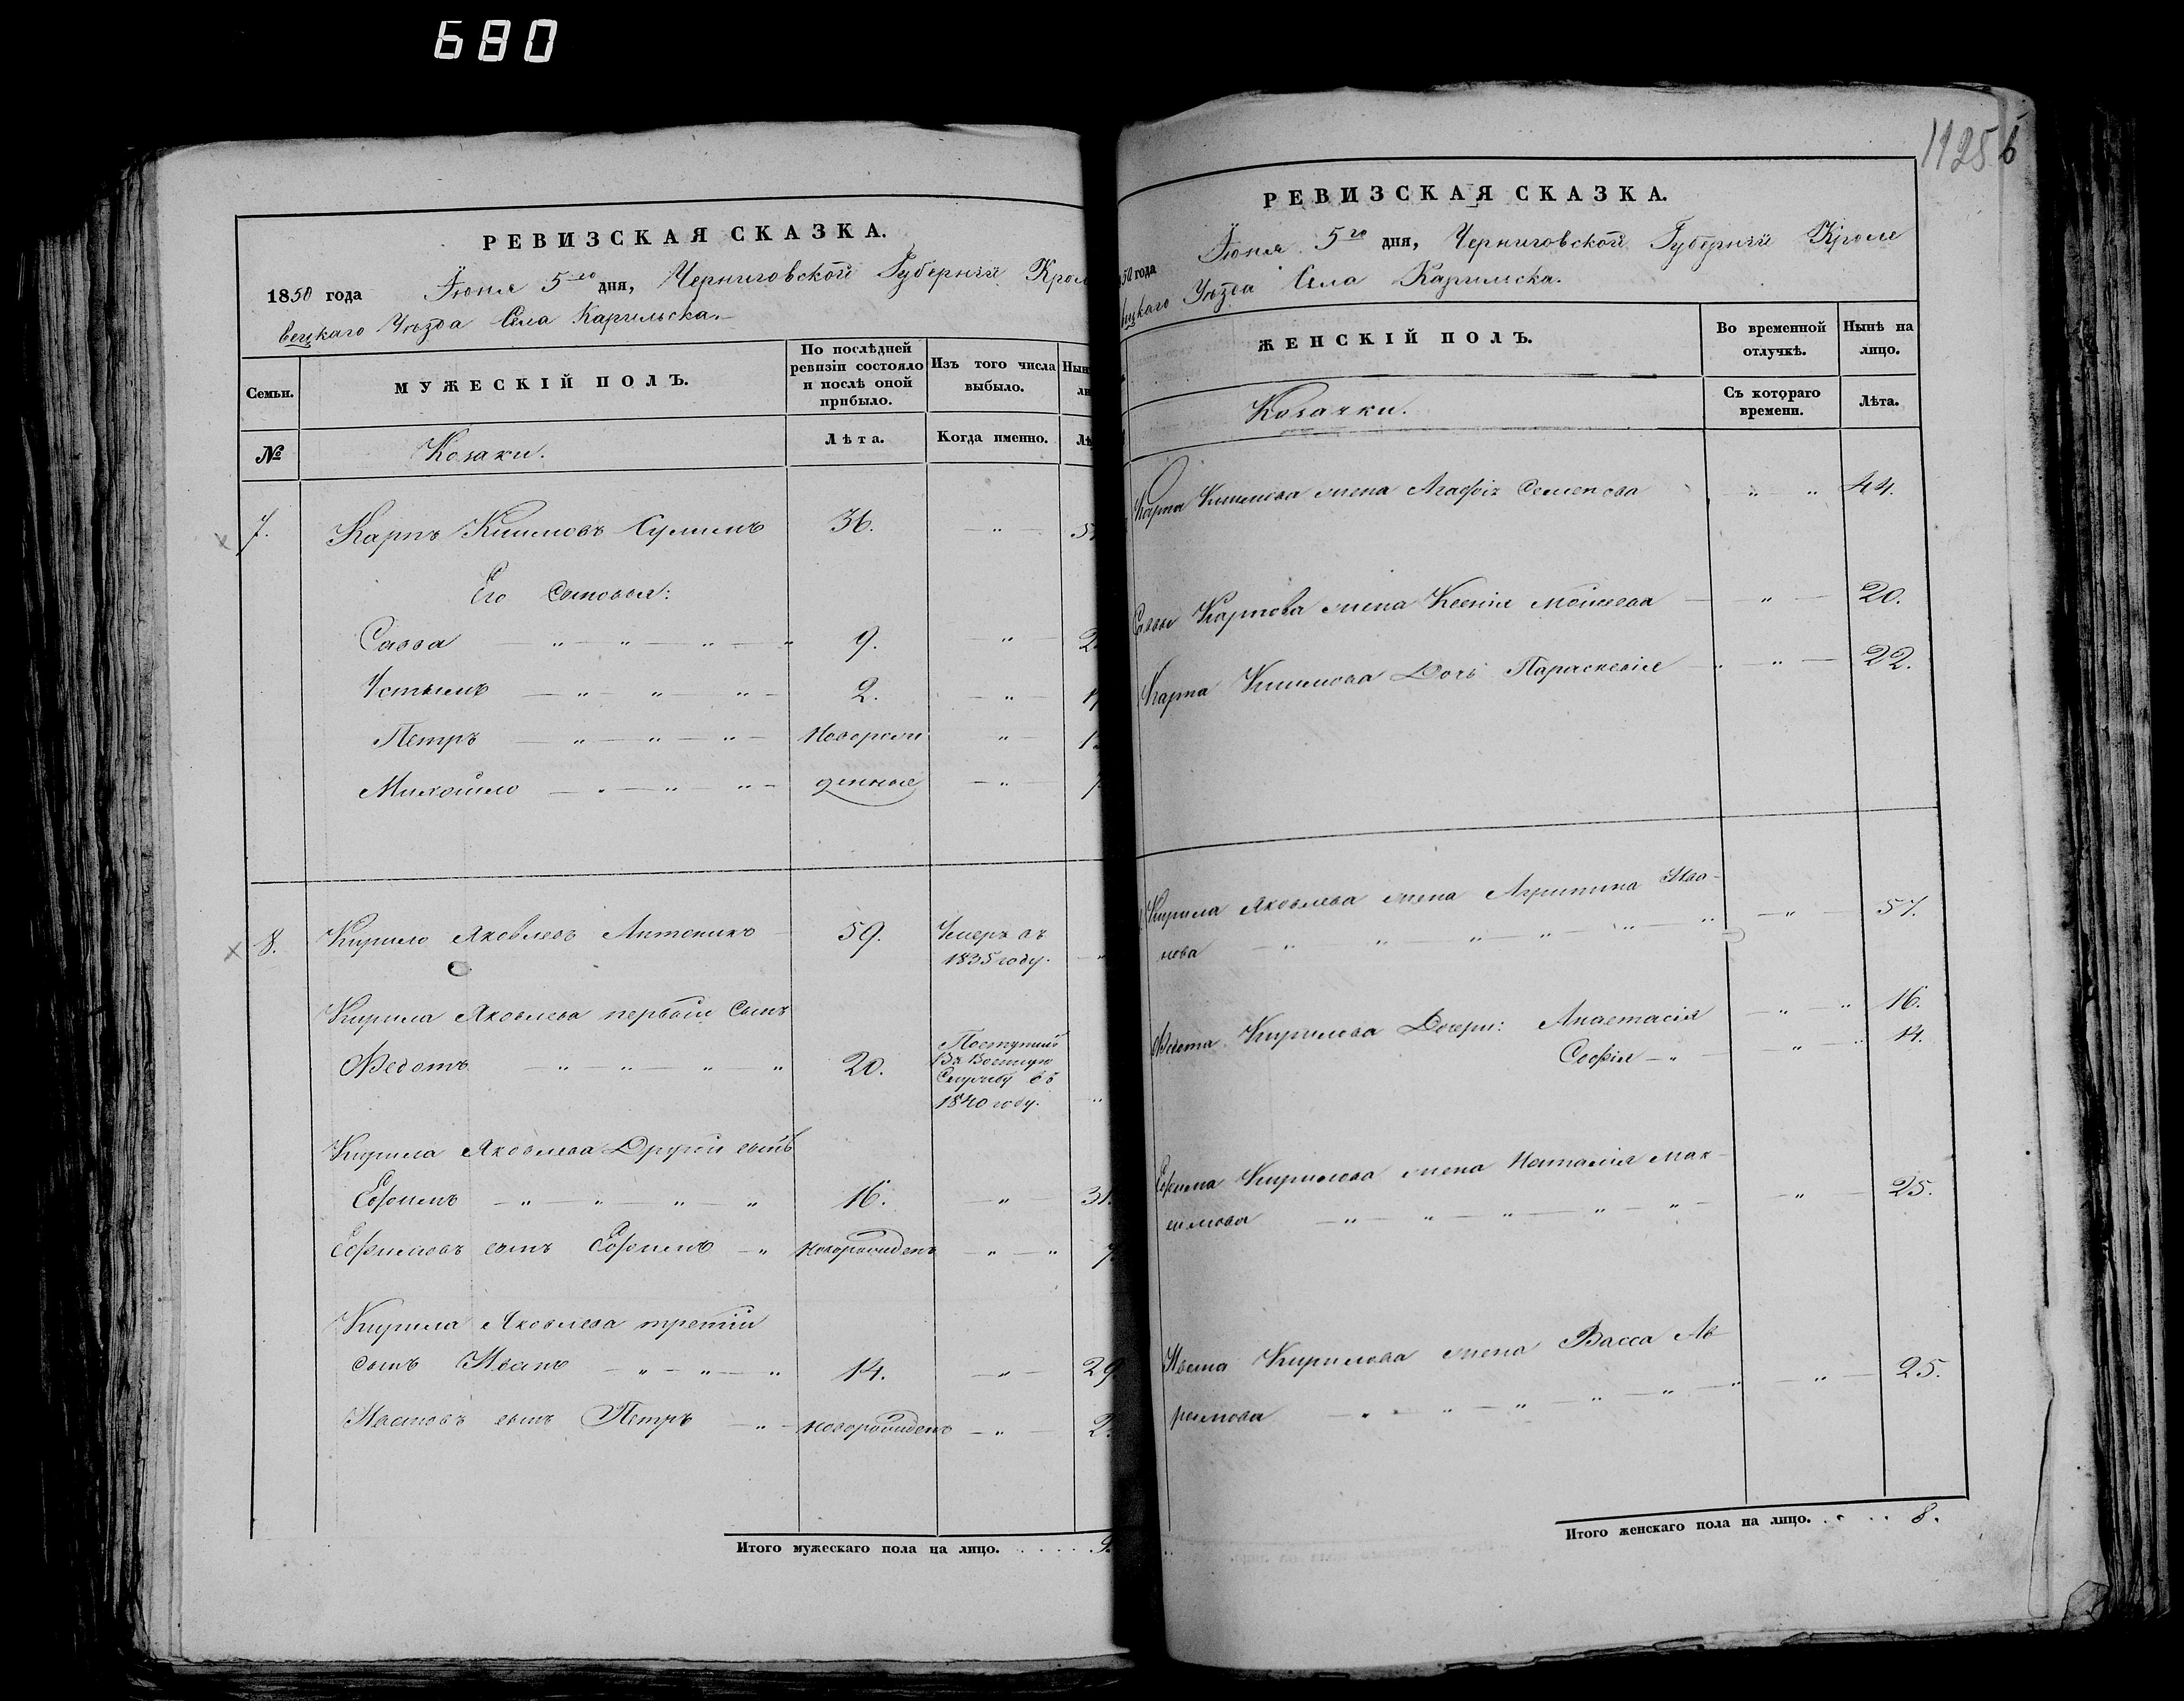 680
РЕВИЗСКАЯ СКАЗКА.
1850 года Іюня 5го дня, Черниговской Губерніи Крол
вецкаго Уѣзда Села Карильска.
Семьи.
МУЖЕСКІЙ ПОЛЪ.
По послѣдней ревизіи состояло и послѣ оной прибыло.
Изъ того числа выбыло.
№
Козаки.
Лѣта.
Когда именно.
7. Карпъ Климовъ 36.
Его Сыновья:
Савва 9.
Устимъ 2.
Петръ Новорож
Михайло денные
8. Кирило Яковлевъ Антоникъ 59. Умеръ въ
1835 году.
Кирила Яковлева первый Сынъ
Федотъ 20. Поступилъ
Въ Военную
Службу въ
1840 году.
Кирила Яковлева Другой сынъ
Ефимъ 16. 31.
Ефимовъ сынъ Ефимъ новорожденъ 7.
Кирила Яковлева третій
сынъ Иванъ 14. 29
Ивановъ сынъ Петръ новорожденъ 2.
Итого мужескаго пола на лицо. 9.
1125 6
РЕВИЗСКАЯ СКАЗКА.
50 года Іюня 5го дня, Черниговской Губерніи Кроле
вецкаго Уѣзда Села Карильска.
ЖЕНСКІЙ ПОЛЪ.
Во временной отлучкѣ.
Нынѣ на лицо.
Козачки.
Съ котораго времени.
Лѣта.
Карпа Климова жена Агафія Семенова 44.
Саввы Карпова жена Ксенія Моисеева 20.
Карпа Климова Дочь Параскевія 22.
Кирила Яковлева жена Агрипина Ива-
нова 57.
Федота Кирилова Дочери: Анастасія 16.
Софія 14.
Ефима Кирилова жена Наталія Мак-
симова 25.
Ивана Кирилова жена Васса Ав-
рамова 25.
Итого женскаго пола на лицо. 8.